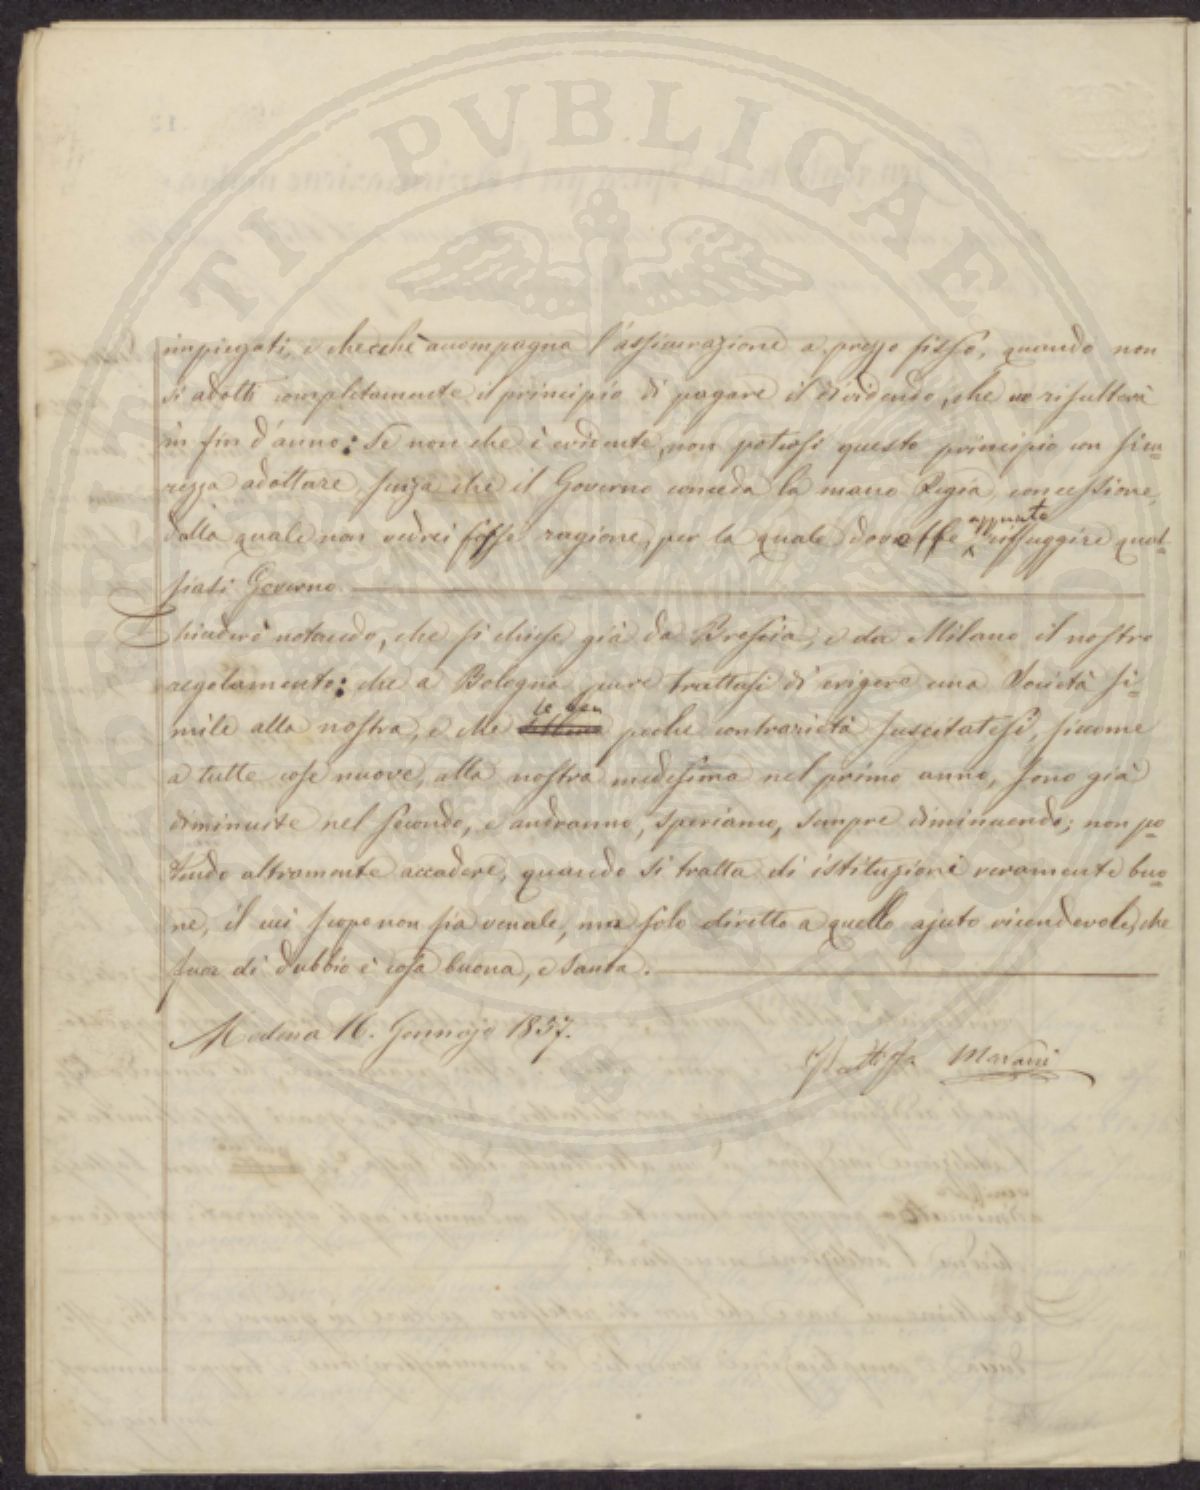 PERITI PVBLICAE
impiegati, e checchè accompagna l'assicurazione a prezzo fisso, quando non
si adotti completamente il principio di pagare il dividendo, che ne risulterà
in fin d'anno: Se non che è evidente, non potersi questo principio con sicu=
rezza adottare, senza che il Governo conceda la mano Regia, concessione,
dalla quale non vedrei fosse ragione, per la quale dovesse appunto rifuggire qual=
siasi Governo.
Chiuderò notando, che si chiese già da Brescia, e da Milano il nostro
regolamento: che a Bologna pure trattasi di erigere una Società si=
mile alla nostra, e che le ben poche contrarietà suscitatesi, siccome
a tutte cose nuove, alla nostra medesima nel primo anno, sono già
diminuite nel secondo, e andranno, speriamo, sempre diminuendo; non po=
tendo altramente accadere, quando si tratta di istituzioni veramente buo=
ne, il cui scopo non sia venale, ma solo diretto a quello ajuto vicendevole, che
fuor di dubbio è cosa buona, e santa.
Modena 16. Gennajo 1837.
Marani